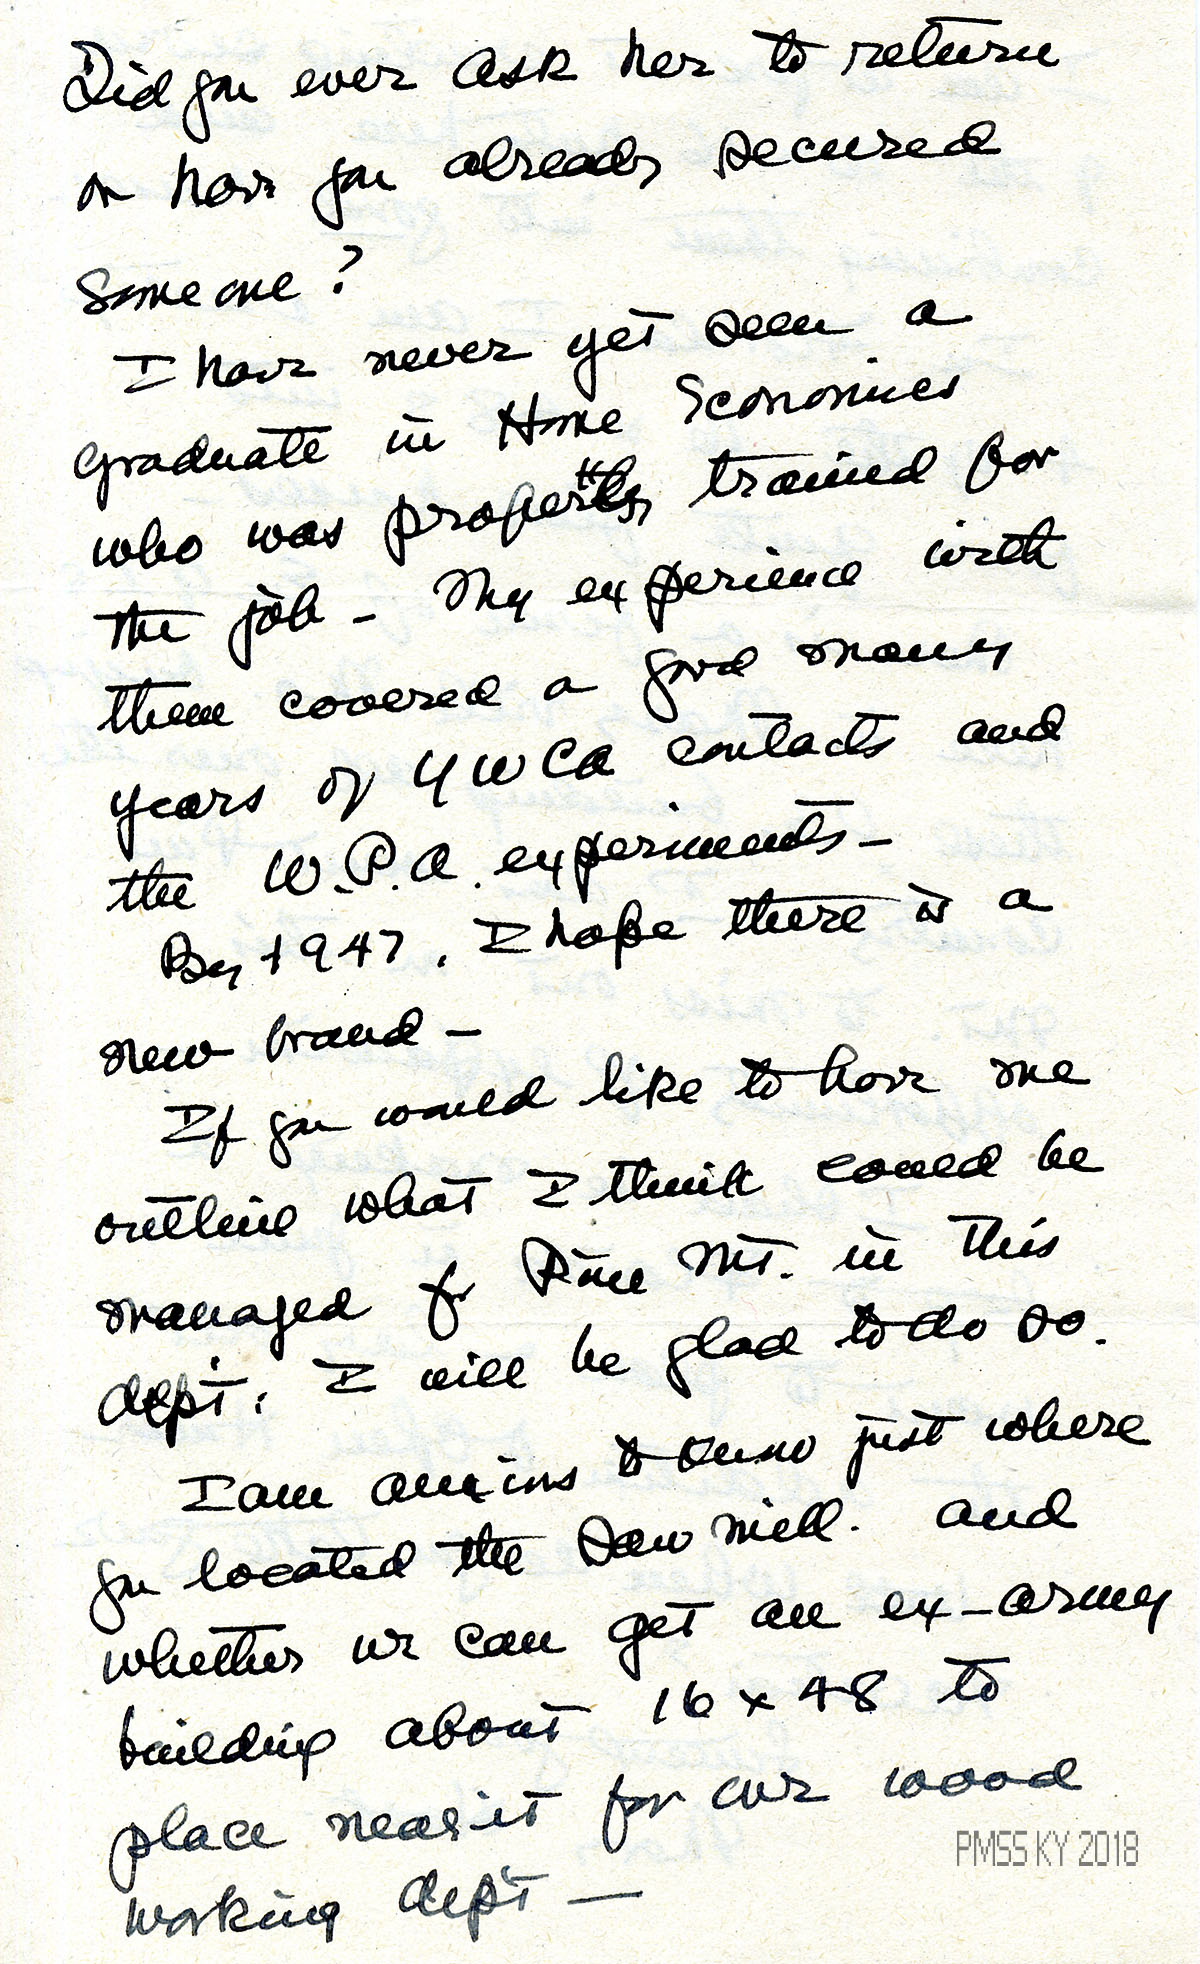 Did you ever ask her to return
or have you already secured
someone?
I have never yet seen a
graduate in Home Economics
who was properly trained for
the job - My experience with
them covered a good many
years of YWCA contacts and
the W.P.A. experiments -
By 1947, I hope there is a
new brand -
If you would like to have me
outline what I think could be
managed for Pine Mt. in this
dep't. I will be glad to do so.
I am anxious to know just where
you located the saw mill. and
whether we can get an ex-army
building about 16 x 48 to
place near it for our wood
working dep't —
PMSS KY 2018